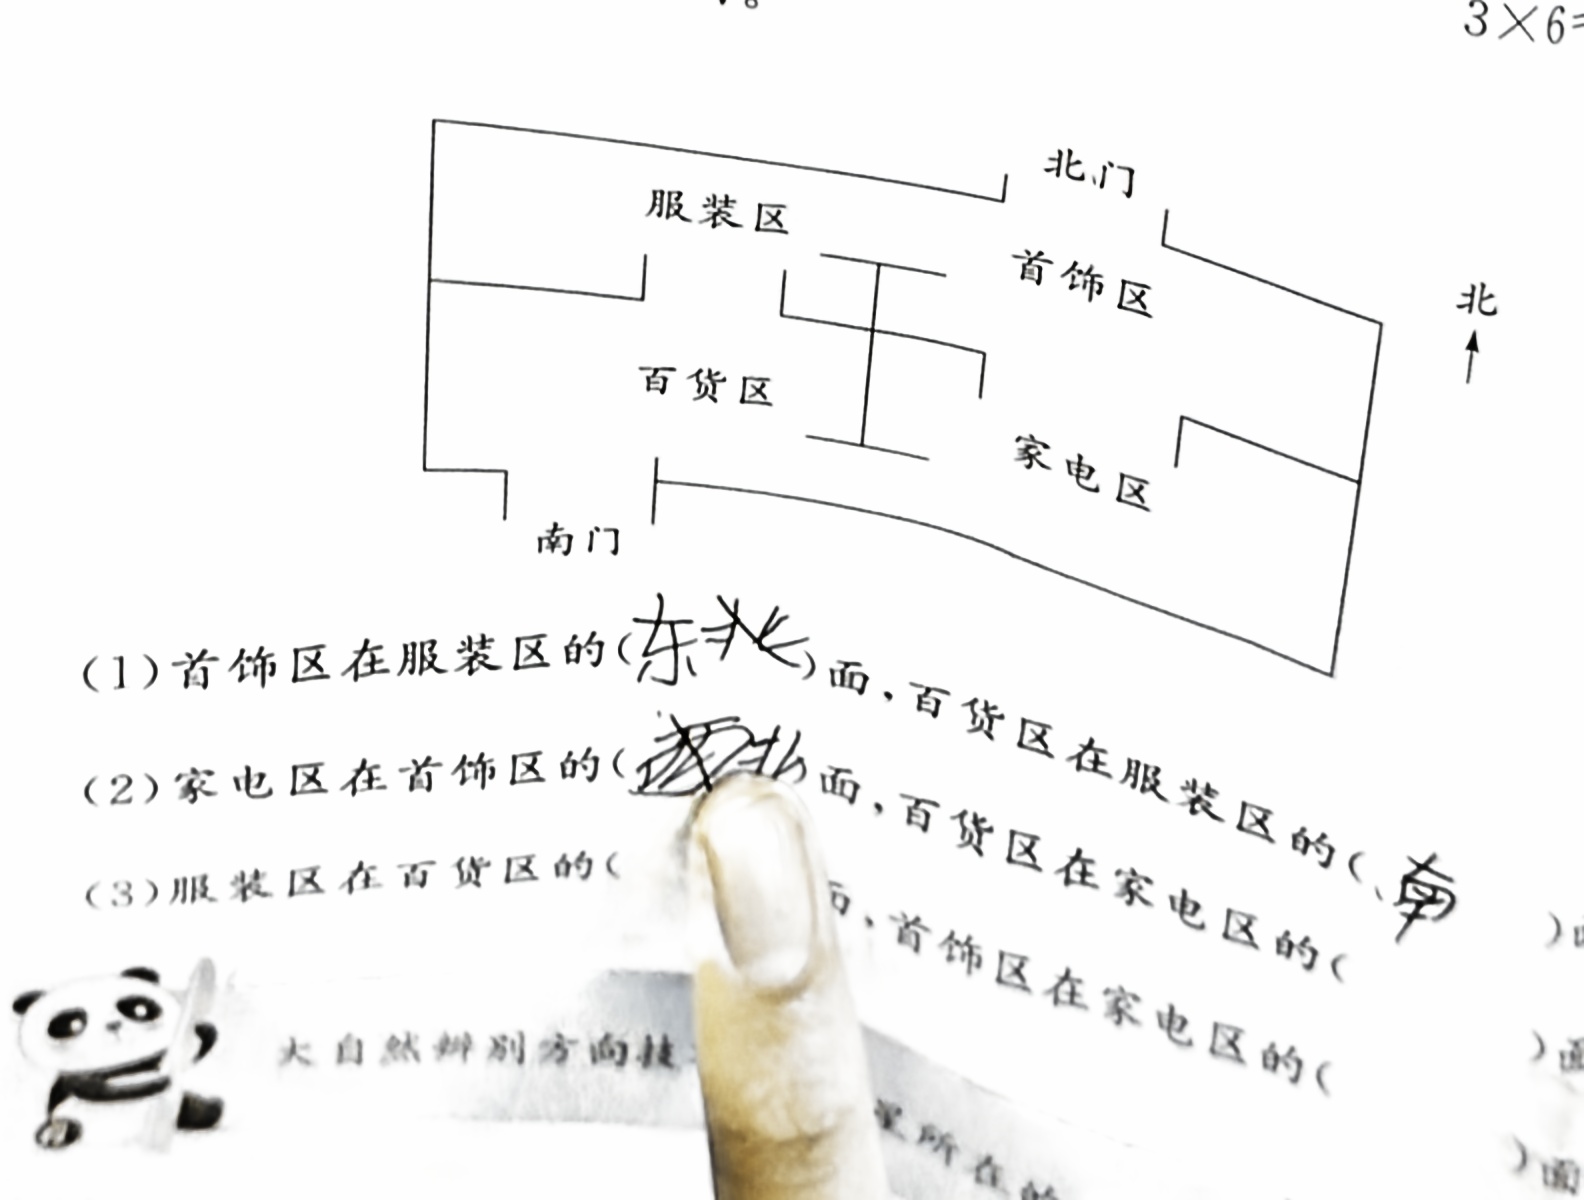 3×6=
北门
服装区
首饰区
北
百货区
家电区
南门
(1)首饰区在服装区的(东北)面,百货区在服装区的(南)面
(2)家电区在首饰区的( 北)面,百货区在家电区的( )面
(3)服装区在百货区的( 面,首饰区在家电区的( )面
大自然辨别方向技
所在的